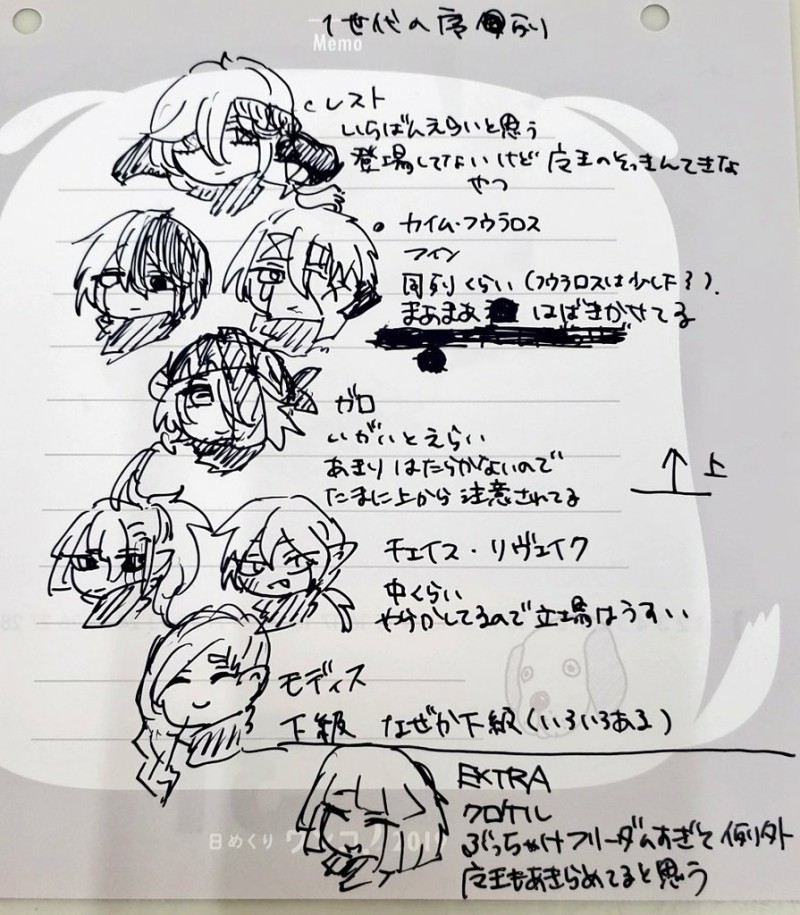 1世代の序列
Memo
レスト
いちばんえらいと思う
登場してないけど 魔王のそっきんてきな
やつ
・カイム・フウラロス
フィン
同列くらい(フウラロスは少し下?).
まあまあ はばきかせてる
ガロ
いがいとえらい
あまりはたらかないので
たまに上から注意されてる
↑上
チェイス・リヴェイク
中くらい
やらかしてるので立場はうすい
モディス
下級 なぜか下級(いろいろある)
EXTRA
クロケル
ぶっちゃけフリーダムすぎて例外
魔王もあきらめてると思う
日めくり ワンコ 201